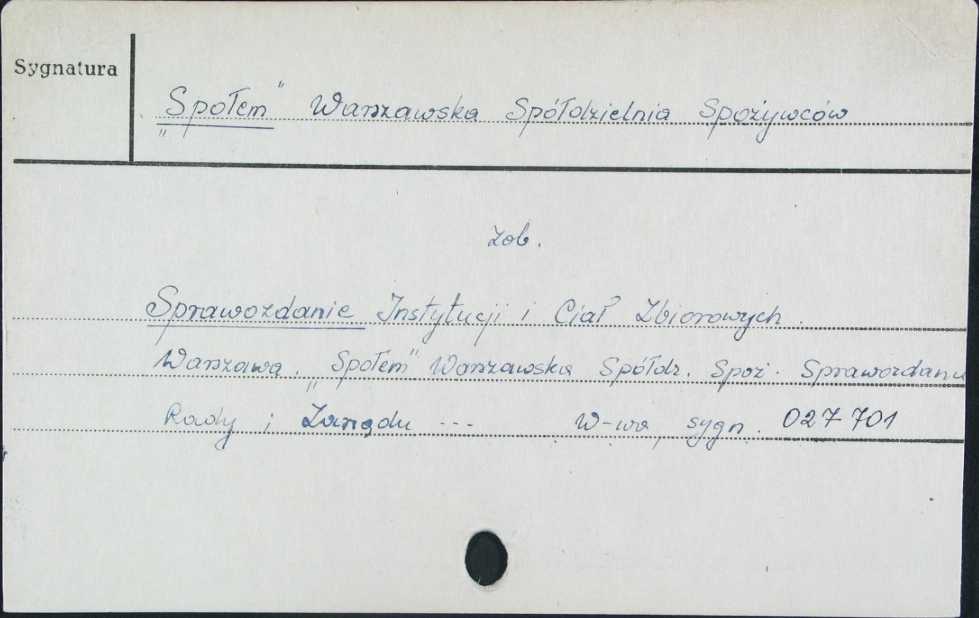 Sygnatura
„Społem" Warszawska Spółdzielnia Spożywców
Zob.
Sprawozdanie Instytucji i Ciał Zbiorowych.
Warszawa. „Społem" Warszawska Spółdz. Spoż. Sprawozdanie
Rady i Zarządu --- W-wa, sygn. 027701